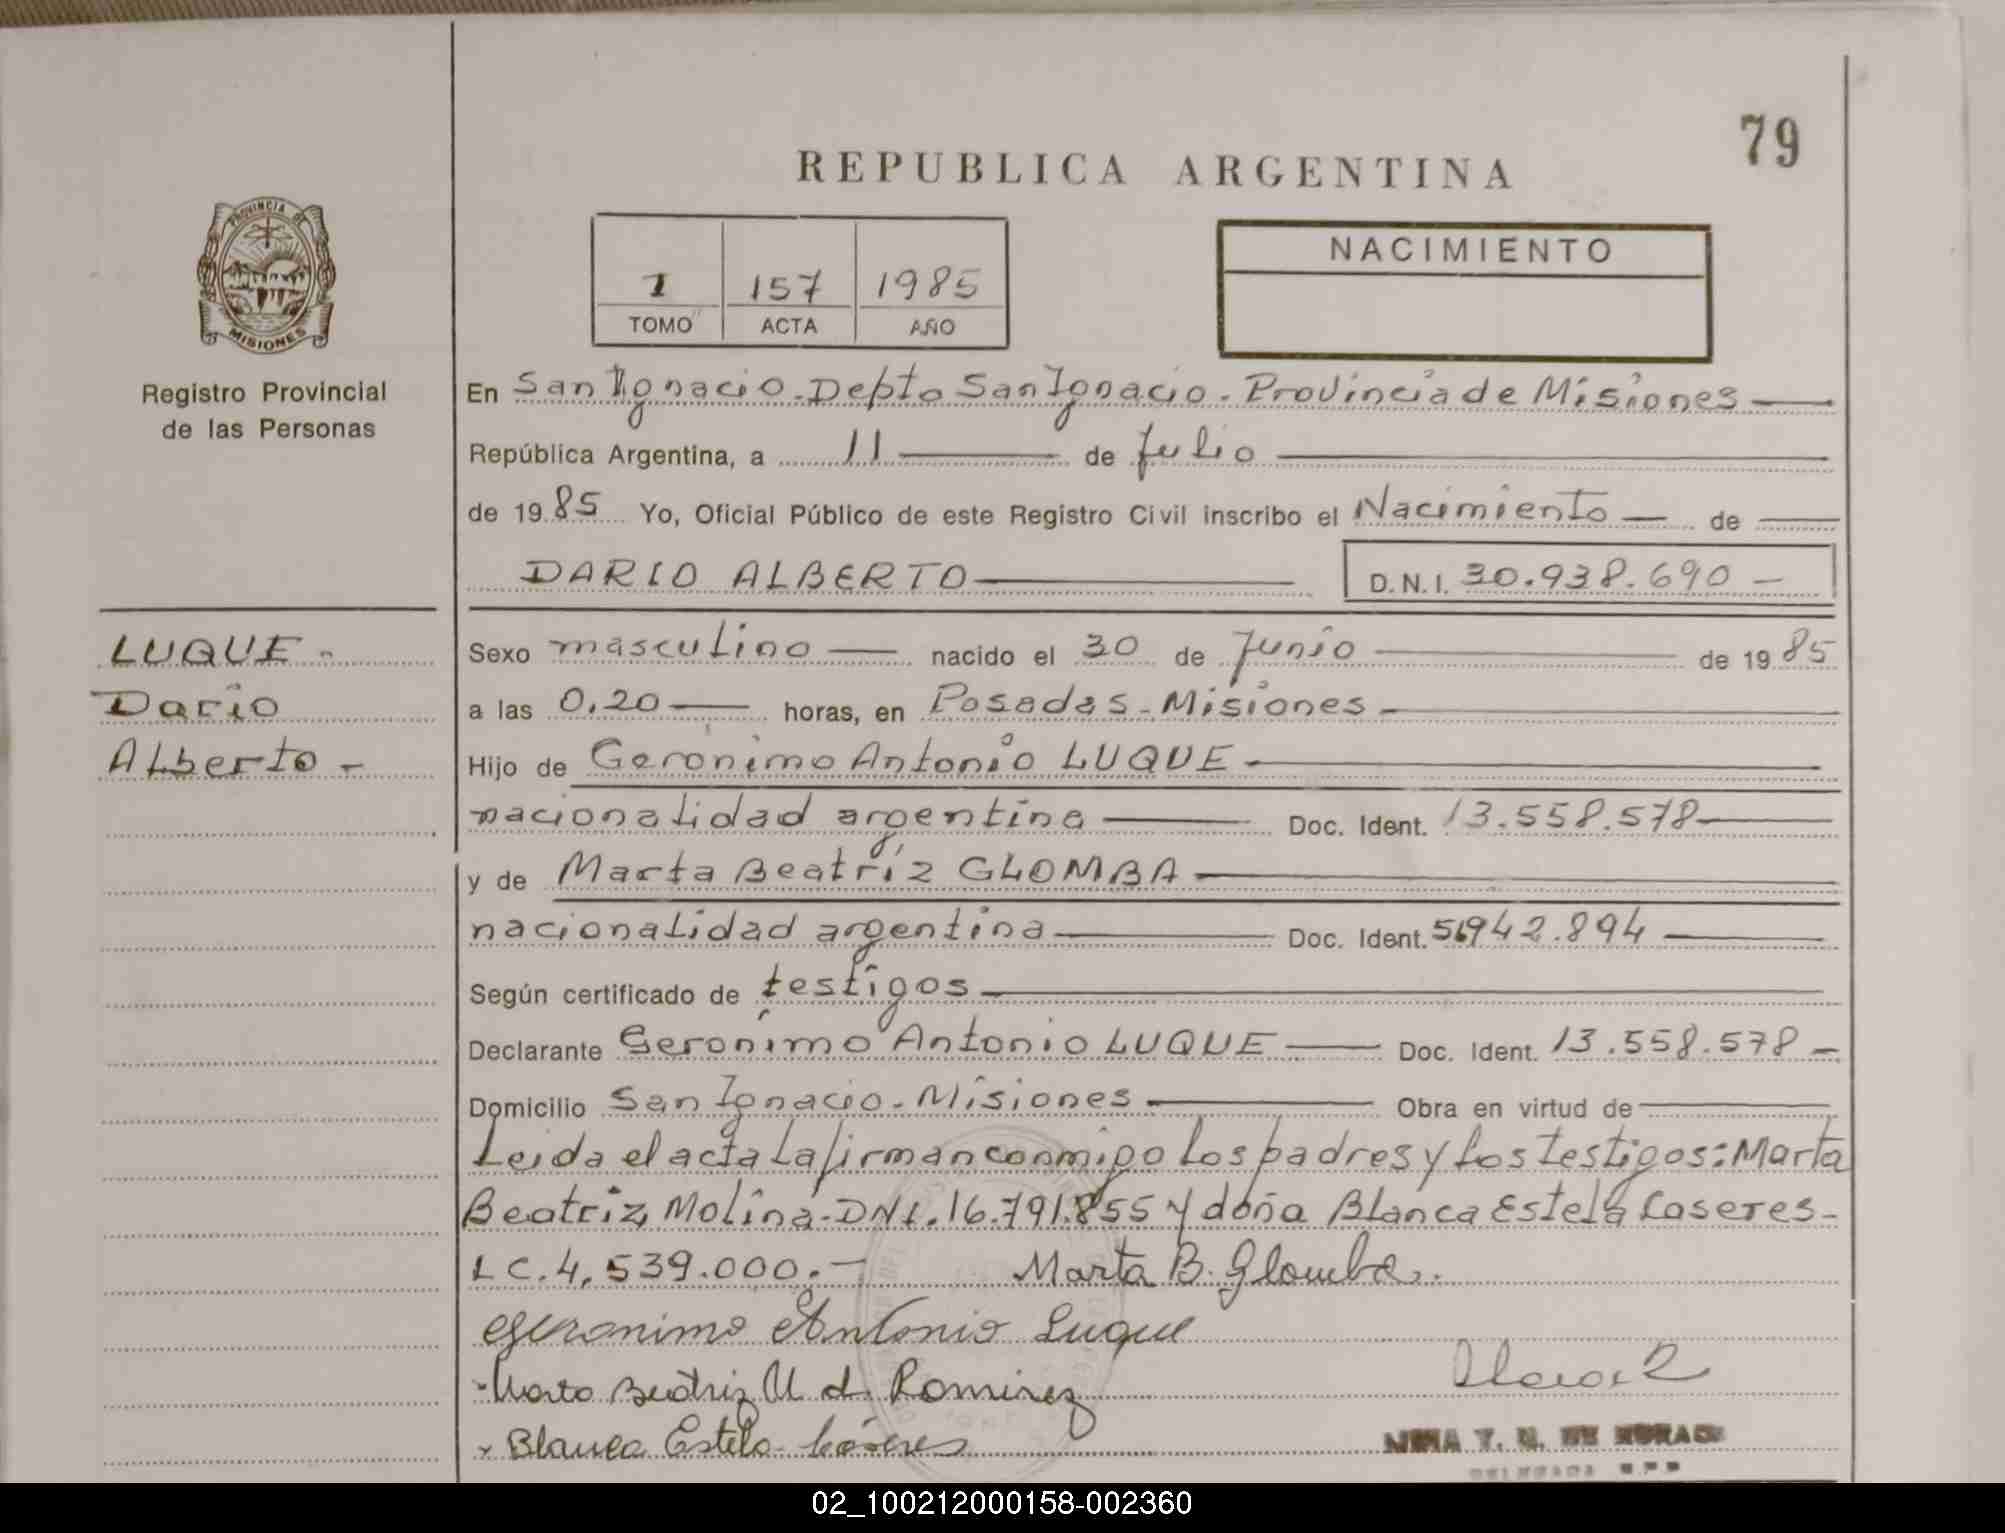 79
REPUBLICA ARGENTINA
PROVINCIA DE
MISIONES
Registro Provincial
de las Personas
1 157 1985
TOMO ACTA AÑO
NACIMIENTO
En San Ignacio - Depto San Ignacio - Provincia de Misiones
República Argentina, a 11 de Julio
de 1985 Yo, Oficial Público de este Registro Civil inscribo el Nacimiento de
DARIO ALBERTO D.N.I. 30.938.690
LUQUE -
Dario
Alberto -
Sexo masculino nacido el 30 de Junio de 1985
a las 0,20 horas, en Posadas - Misiones
Hijo de Gerónimo Antonio LUQUE
nacionalidad argentina Doc. Ident. 13.558.578
y de Marta Beatríz GLOMBA
nacionalidad argentina Doc. Ident.
Según certificado de testigos
Declarante Gerónimo Antonio LUQUE Doc. Ident. 13.558.578
Domicilio San Ignacio - Misiones Obra en virtud de
Leida el acta la firman conmigo los padres y los testigos: Marta
Beatriz Molina - DNI. 16.791.855 y doña Blanca Estela Caseres -
LC. 4.539.000. - Marta B. Glomba.
Geronimo Antonio Luque
Marta Beatriz M d Ramirez
Blanca Estela Cáseres
02_100212000158-002360